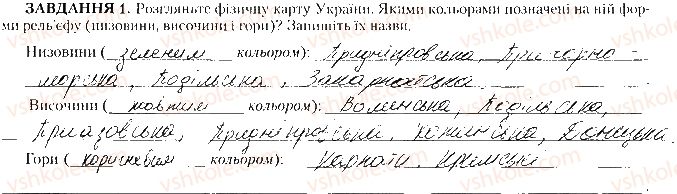 ЗАВДАННЯ 1. Розгляньте фізичну карту України. Якими кольорами позначені на ній фор-
ми рельєфу (низовини, височини і гори)? Запишіть їх назви.
Низовини ( зеленим кольором): Придніпровська, Причорно-
морська, Подільська, Закарпатська
Височини ( жовтим кольором): Волинська, Подільська,
Приазовська, Придніпровська, Донецька.
Гори ( коричневым кольором): Карпати. Кримські